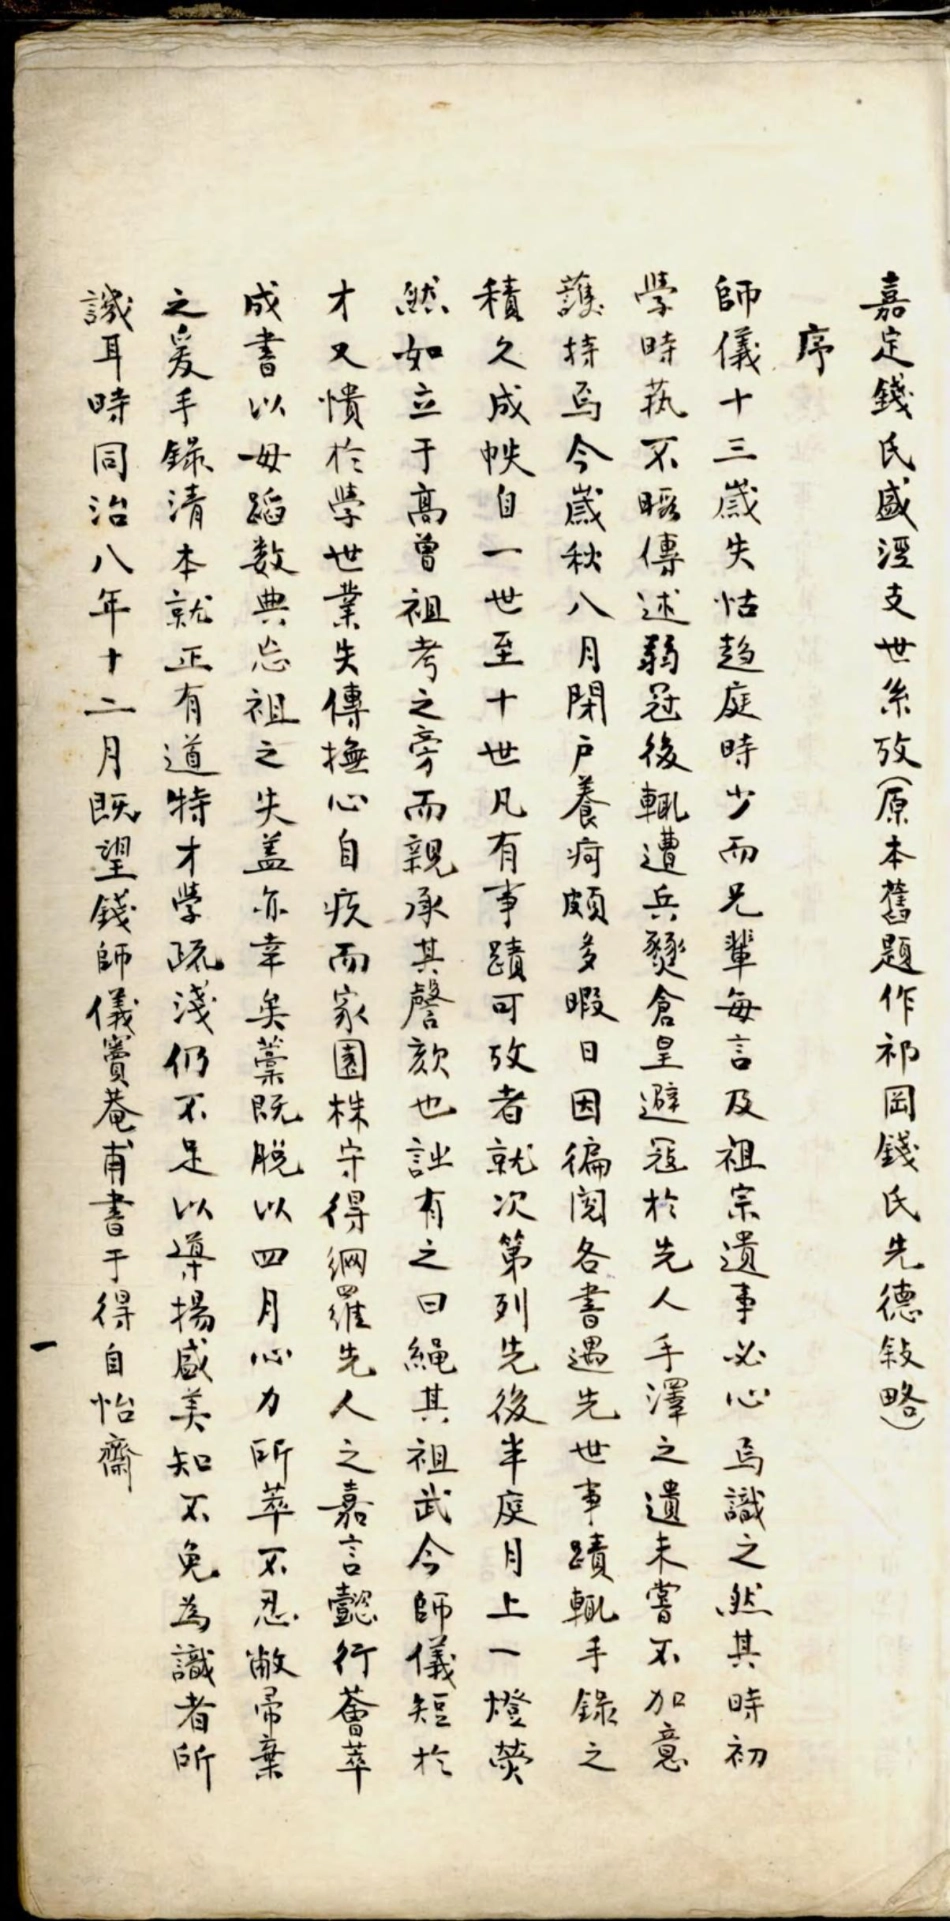 嘉定錢氏盛涇支世系攷(原本舊題作祁岡錢氏先德敍略)
序
師儀十三歲失怙趨庭時少而兄輩每言及祖宗遺事必心焉識之然其時初
學時蓺不暇傳述弱冠後輒遭兵燹倉皇避寇於先人手澤之遺未嘗不加意
護持焉今歲秋八月閉户養疴頗多暇日因徧閱各書遇先世事蹟輒手錄之
積久成帙自一世至十世凡有事蹟可攷者就次第列先後半庭月上一燈熒
然如立于高曾祖考之旁而親承其謦欬也詿有之曰繩其祖武今師儀短於
才又憒於學世業失傳撫心自疚而家園株守得網羅先人之嘉言懿行薈萃
成書以毋蹈数典忘祖之失盖亦幸矣藁既脱以四月心力所萃不忍敝帚棄
之爰手錄清本就正有道特才學疏淺仍不足以導揚盛美知不免為識者所
譏耳時同治八年十二月既望錢師儀賓菴甫書于得自怡齋
一